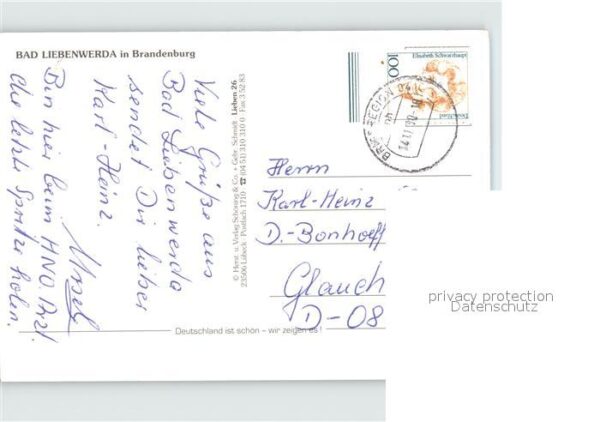 BAD LIEBENWERDA in Brandenburg
Viele Grüße aus
Bad Liebenwerda
sendet Dir lieber
Karl-Heinz.
Ursel
Bin hier beim HNO. Arzt.
die letzte Spritze holen.
© Herst. u. Verlag Schöning & Co. + Gebr. Schmidt
23506 Lübeck · Postfach 1710 · ☎ (04 51) 310 310
Lieben 26
Fax 3 52 83
Deutschland ist schön – wir zeigen es!
100
Elisabeth Schwarzhaupt
BRIEFREGION 04
Herrn
Karl-Heinz
D.-Bonhoeff
Glauch
D-08
privacy protection
Datenschutz